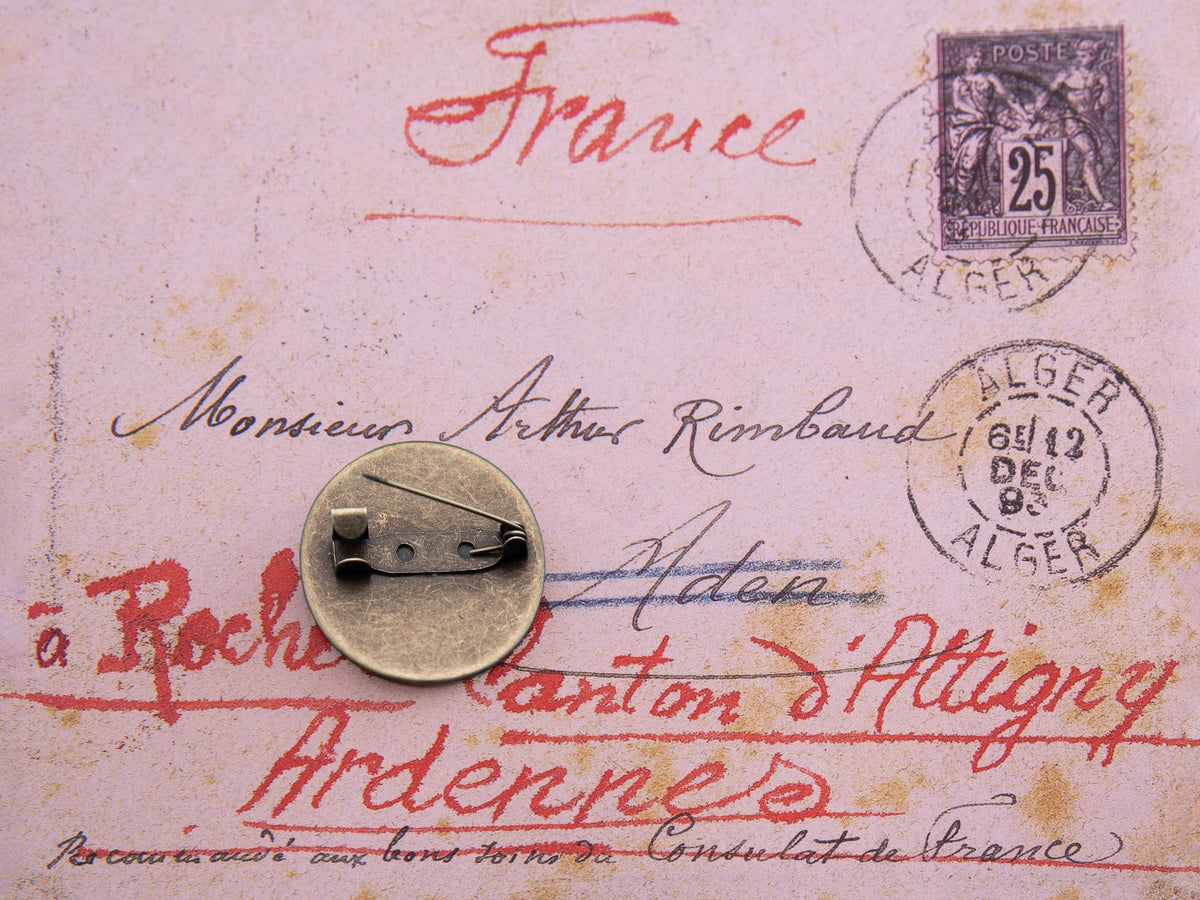 France
POSTE
25
RÉPUBLIQUE FRANÇAISE
ALGER
Monsieur Arthur Rimbaud
ALGER
12
DEC
ALGER
Aden
à Roche Canton d'Attigny
Ardennes
Recommandé aux bons soins du Consulat de France